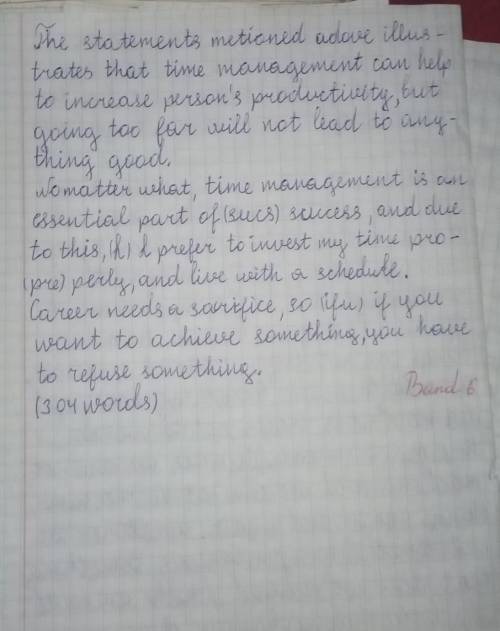 The statements metioned adove illus-
trates that time management can help
to increase person's productivity, but
going too far will not lead to any-
thing good.
No matter what, time management is an
essential part of (sucs) success, and due
to this, (h) I prefer to invest my time pro-
(pre) perly, and live with a schedule.
Career needs a sacrifice, so (ifu) if you
want to achieve something, you have
to refuse something.
(304 words)
Band 6